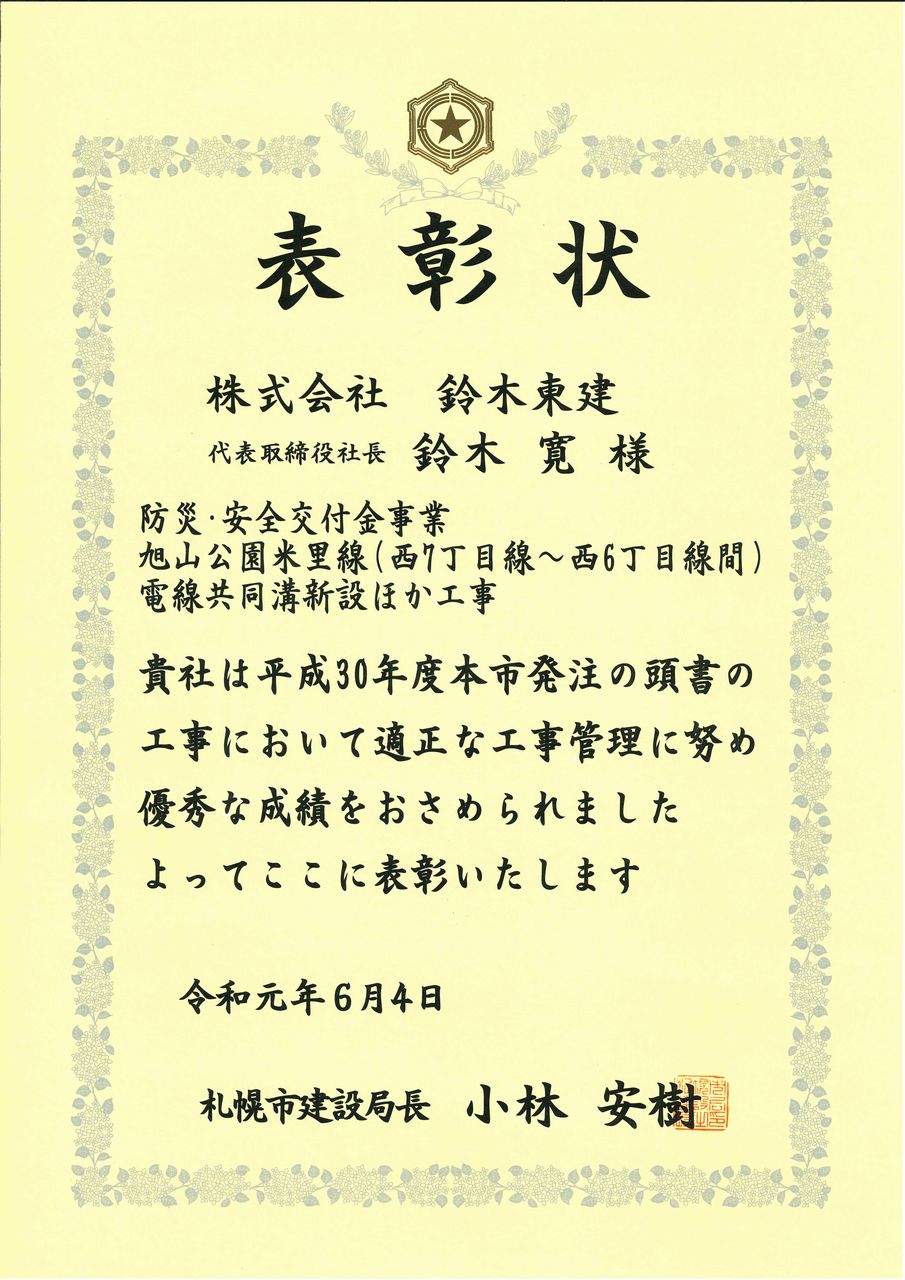 表彰状
株式会社　鈴木東建
代表取締役社長 鈴木 寛 様
防災・安全交付金事業
旭山公園米里線(西7丁目線～西6丁目線間)
電線共同溝新設ほか工事
貴社は平成30年度本市発注の頭書の
工事において適正な工事管理に努め
優秀な成績をおさめられました
よってここに表彰いたします
令和元年6月4日
札幌市建設局長 小林 安樹